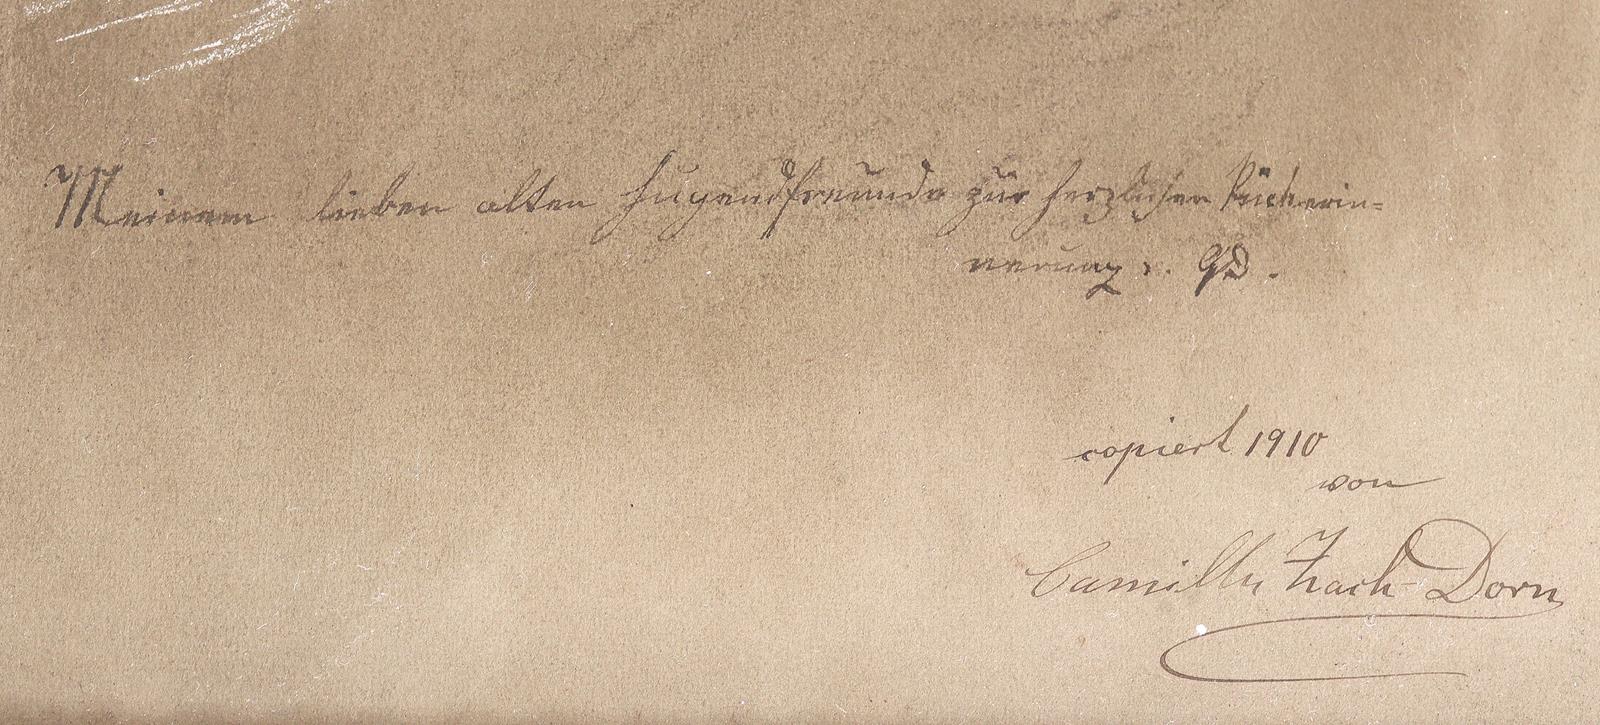 Meinem lieben alten Jugendfreunde zur herzlichen Rückerin=
nerung v. GD.
copiert 1910
von
Camilla Zach-Dorn